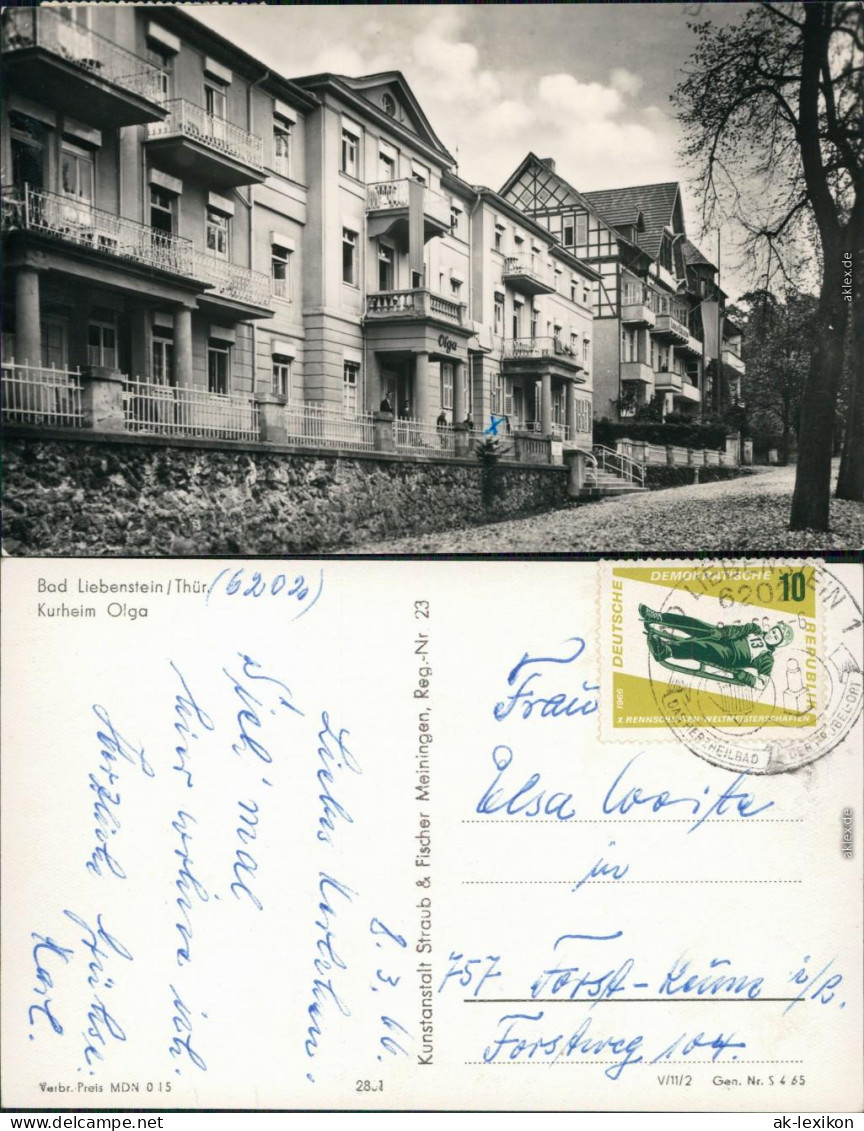 Olga
x
Bad Liebenstein/Thür. (6202)
Kurheim Olga
8.3.66
Liebes
Sieh' mal
hier wohne ich.
Herzliche Grüße.
Karl.
Kunstanstalt Straub & Fischer Meiningen, Reg.-Nr 23
DEUTSCHE DEMOKRATISCHE REPUBLIK
10
13
1966
X. RENNSCHLITTEN-WELTMEISTERSCHAFTEN
BAD LIEBENSTEIN 1
6202
DAS HERZHEILBAD DER REPUBLIK
Frau
Elsa
in
757 Forst-Keune i/L.
Forstweg 104.
Verbr.-Preis MDN 0.15
V/11/2 Gen. Nr. S 4 65
aklex.de
aklex.de
www.ak-ansichtskarten.de
ak-lexikon.com